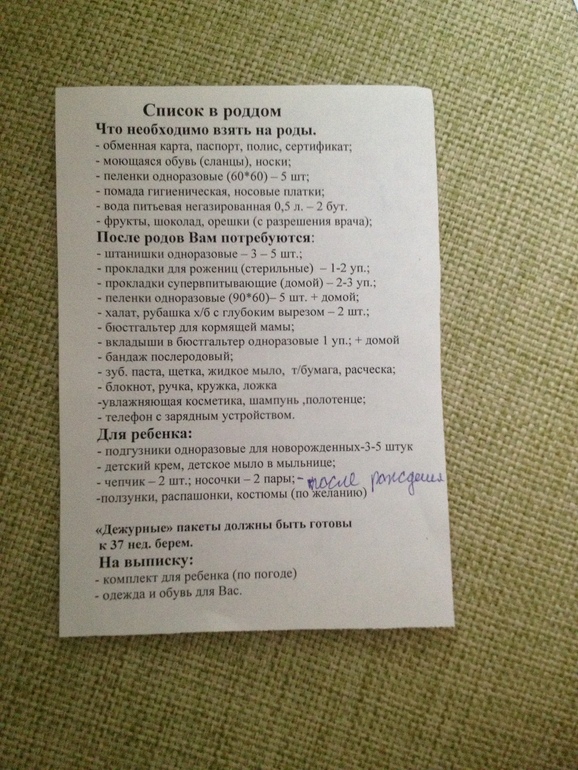 Список в роддом
Что необходимо взять на роды.
- обменная карта, паспорт, полис, сертификат;
- моющаяся обувь (сланцы), носки;
- пеленки одноразовые (60*60) – 5 шт;
- помада гигиеническая, носовые платки;
- вода питьевая негазированная 0,5 л. – 2 бут.
- фрукты, шоколад, орешки (с разрешения врача);
После родов Вам потребуются:
- штанишки одноразовые – 3 – 5 шт.;
- прокладки для рожениц (стерильные) – 1-2 уп.;
- прокладки супервпитывающие (домой) – 2-3 уп.;
- пеленки одноразовые (90*60)– 5 шт. + домой;
- халат, рубашка х/б с глубоким вырезом – 2 шт.;
- бюстгальтер для кормящей мамы;
- вкладыши в бюстгальтер одноразовые 1 уп.; + домой
- бандаж послеродовый;
- зуб. паста, щетка, жидкое мыло, т/бумага, расческа;
- блокнот, ручка, кружка, ложка
-увлажняющая косметика, шампунь ,полотенце;
- телефон с зарядным устройством.
Для ребенка:
- подгузники одноразовые для новорожденных-3-5 штук
- детский крем, детское мыло в мыльнице;
- чепчик – 2 шт.; носочки – 2 пары; - после рождения
-ползунки, распашонки, костюмы (по желанию)
«Дежурные» пакеты должны быть готовы
к 37 нед. берем.
На выписку:
- комплект для ребенка (по погоде)
- одежда и обувь для Вас.